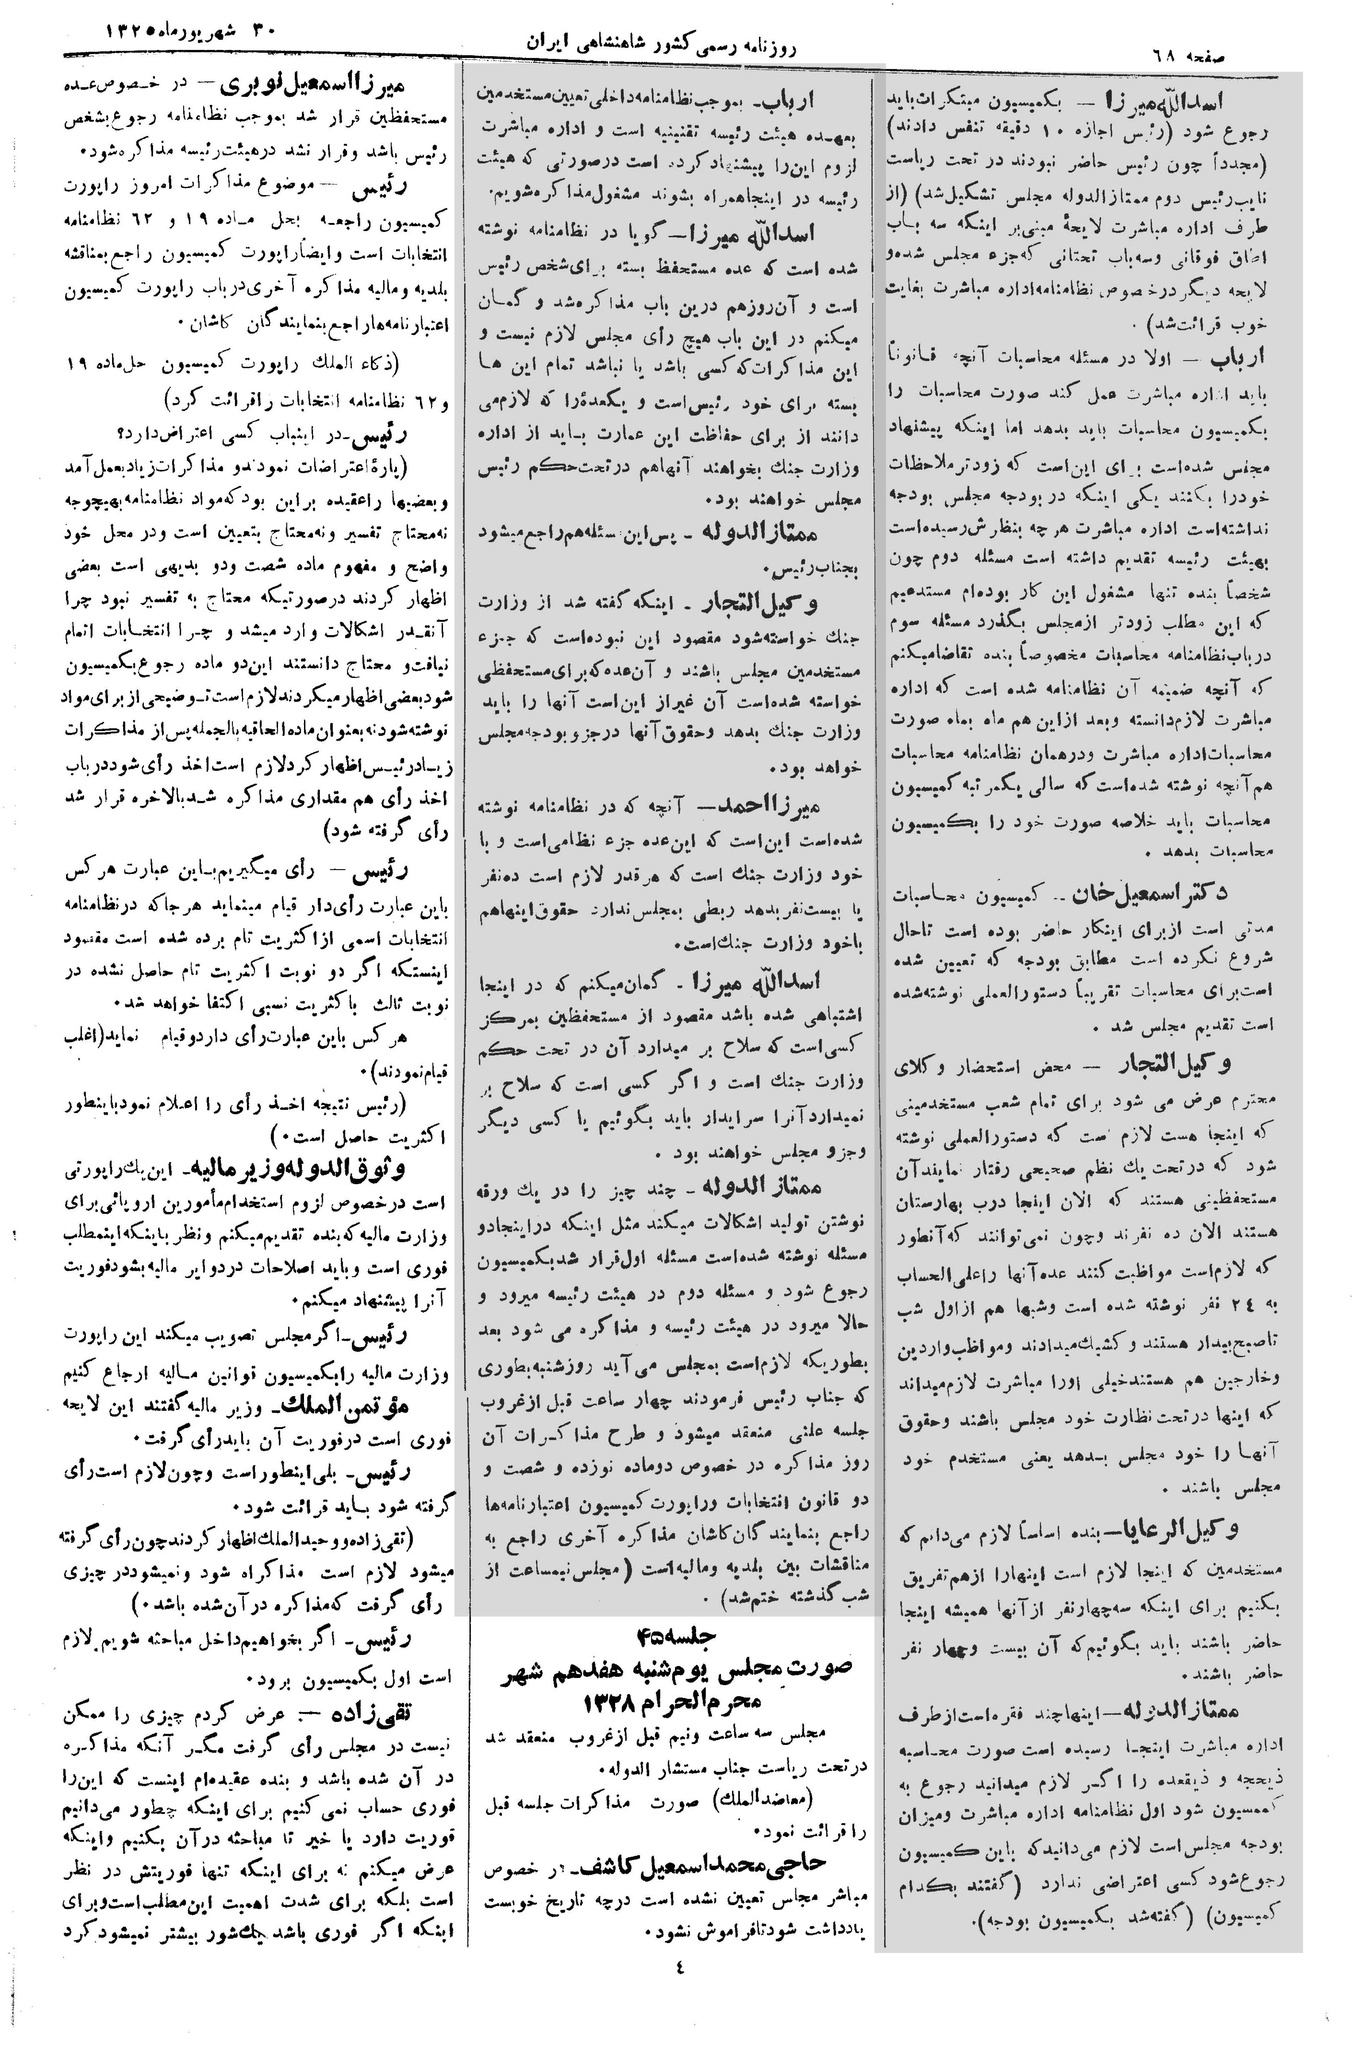 صفحه ٦٨
روزنامه رسمی کشور شاهنشاهی ایران
٣٠ شهریورماه ١٣٢٥
اسدالله میرزا — بکمیسیون مبتکرات باید
رجوع شود (رئیس اجازه ١٠ دقیقه تنفس دادند)
(مجدداً چون رئیس حاضر نبودند در تحت ریاست
نایب رئیس دوم ممتازالدوله مجلس تشکیل شد) (از
طرف اداره مباشرت لایحهٔ مبنی بر اینکه سه باب
اطاق فوقانی وسه باب تحتانی که جزء مجلس شده و
لایحه دیگر درخصوص نظامنامه اداره مباشرت بغایت
خوب قرائت شد) .
ارباب — اولا در مسئله محاسبات آنچه قانوناً
باید اداره مباشرت عمل کند صورت محاسبات را
بکمیسیون محاسبات باید بدهد اما اینکه پیشنهاد
مجلس شده است برای این است که زودتر ملاحظات
خودرا بکنند یکی اینکه در بودجه مجلس بودجه
نداشته است اداره مباشرت هرچه بنظرش رسیده است
بهیئت رئیسه تقدیم داشته است مسئله دوم چون
شخصاً بنده تنها مشغول این کار بوده‌ام مستدعیم
که این مطلب زودتر ازمجلس بگذرد مسئله سوم
درباب نظامنامه محاسبات مخصوصاً بنده تقاضا میکنم
که آنچه ضمیمه آن نظامنامه شده است که اداره
مباشرت لازم دانسته وبعد ازاین هم ماه بماه صورت
محاسبات اداره مباشرت ودرهمان نظامنامه محاسبات
هم آنچه نوشته شده است که سالی یکمرتبه کمیسیون
محاسبات باید خلاصه صورت خود را بکمیسیون
محاسبات بدهد .
دکتر اسمعیل خان — کمیسیون محاسبات
مدتی است ازبرای اینکار حاضر بوده است تاحال
شروع نکرده است مطابق بودجه که تعیین شده
است برای محاسبات تقریباً دستورالعملی نوشته شده
است تقدیم مجلس شد .
وکیل التجار — محض استحضار وکلای
محترم عرض می شود برای تمام شعب مستخدمینی
که اینجا هست لازم است که دستورالعملی نوشته
شود که درتحت یك نظم صحیحی رفتار نمایند آن
مستحفظینی هستند که الان اینجا درب بهارستان
هستند الان ده نفرند وچون نمی توانند که آنطور
که لازم است مواظبت کنند عده آنها را علی الحساب
به ٢٤ نفر نوشته شده است وشبها هم ازاول شب
تاصبح بیدار هستند و کشیك میدادند ومواظب واردین
وخارجین هم هستند خیلی اورا مباشرت لازم میداند
که اینها درتحت نظارت خود مجلس باشند وحقوق
آنها را خود مجلس بدهد یعنی مستخدم خود
مجلس باشند .
وکیل الرعایا — بنده اساساً لازم می دانم که
مستخدمین که اینجا لازم است اینهارا ازهم تفریق
بکنیم برای اینکه سه چهار نفر ازآنها همیشه اینجا
حاضر باشند باید بگوئیم که آن بیست وچهار نفر
حاضر باشند.
ممتازالدوله — اینها چند فقره است ازطرف
اداره مباشرت اینجا رسیده است صورت محاسبه
ذیحجه و ذیقعده را اگر لازم میدانید رجوع به
کمیسیون شود اول نظامنامه اداره مباشرت ومیزان
بودجه مجلس است لازم می دانید که باین کمیسیون
رجوع شود کسی اعتراضی ندارد (گفتند بکدام
کمیسیون) (گفته شد بکمیسیون بودجه).
ارباب – بموجب نظامنامه داخلی تعیین مستخدمین
بعهده هیئت رئیسه تقنینیه است و اداره مباشرت
لزوم این را پیشنهاد کرده است درصورتی که هیئت
رئیسه در اینجا همراه بشوند مشغول مذاکره شویم.
اسدالله میرزا — گویا در نظامنامه نوشته
شده است که عده مستحفظ بسته برای شخص رئیس
است و آن روزهم درین باب مذاکره شد و گمان
میکنم در این باب هیچ رأی مجلس لازم نیست و
این مذاکرات که کسی باشد یا نباشد تمام این ها
بسته برای خود رئیس است و یکعدهٔ را که لازم می
دانند از برای حفاظت این عمارت باید از اداره
وزارت جنك بخواهند آنهاهم درتحت حکم رئیس
مجلس خواهند بود.
ممتازالدوله – پس این مسئله هم راجع میشود
بجناب رئیس.
وکیل التجار – اینکه گفته شد از وزارت
جنك خواسته شود مقصود این نبوده است که جزء
مستخدمین مجلس باشند و آن عده که برای مستحفظی
خواسته شده است آن غیر از این است آنها را باید
وزارت جنك بدهد وحقوق آنها درجزو بودجه مجلس
خواهد بود.
میرزا احمد — آنچه که در نظامنامه نوشته
شده است این است که این عده جزء نظامی است و با
خود وزارت جنك است که هر قدر لازم است ده نفر
یا بیست نفر بدهد ربطی بمجلس ندارد حقوق اینها هم
باخود وزارت جنك است.
اسدالله میرزا – گمان میکنم که در اینجا
اشتباهی شده باشد مقصود از مستحفظین بمرکز
کسی است که سلاح بر میدارد آن در تحت حکم
وزارت جنك است و اگر کسی است که سلاح بر
نمیدارد آنرا سرایدار باید بگوئیم یا کسی دیگر
وجزو مجلس خواهند بود .
ممتازالدوله – چند چیز را در یك ورقه
نوشتن تولید اشکالات میکند مثل اینکه دراینجادو
مسئله نوشته شده است مسئله اول قرار شد بکمیسیون
رجوع شود و مسئله دوم در هیئت رئیسه میرود و
حالا میرود در هیئت رئیسه و مذاکره می شود بعد
بطوریکه لازم است بمجلس می آید روز شنبه بطوری
که جناب رئیس فرمودند چهار ساعت قبل ازغروب
جلسه علنی منعقد میشود و طرح مذاکرات آن
روز مذاکره در خصوص دوماده نوزده و شصت و
دو قانون انتخابات وراپورت کمیسیون اعتبارنامه‌ها
راجع بنمایندگان کاشان مذاکره آخری راجع به
مناقشات بین بلدیه ومالیه است (مجلس نیمساعت از
شب گذشته ختم شد) .
جلسه ٤٥
صورت مجلس یوم شنبه هفدهم شهر
محرم الحرام ١٣٢٨
مجلس سه ساعت ونیم قبل ازغروب منعقد شد
درتحت ریاست جناب مستشار الدوله.
(معاضدالملك) صورت مذاکرات جلسه قبل
را قرائت نمود.
حاجی محمد اسمعیل کاشف – در خصوص
مباشر مجلس تعیین نشده است درچه تاریخ خوبست
یادداشت شود تا فراموش نشود.
میرزا اسمعیل نوبری — در خصوص عده
مستحفظین قرار شد بموجب نظامنامه رجوع بشخص
رئیس باشد وقرار نشد درهیئت رئیسه مذاکره شود.
رئیس — موضوع مذاکرات امروز راپورت
کمیسیون راجعه بحل ماده ١٩ و ٦٢ نظامنامه
انتخابات است وایضاً راپورت کمیسیون راجع بمناقشه
بلدیه ومالیه مذاکره آخری درباب راپورت کمیسیون
اعتبارنامه‌ها راجع بنمایندگان کاشان .
(ذکاء الملك راپورت کمیسیون حل ماده ١٩
و ٦٢ نظامنامه انتخابات را قرائت کرد)
رئیس – در اینباب کسی اعتراض دارد؟
(پارهٔ اعتراضات نمودند و مذاکرات زیاد بعمل آمد
وبعضیها را عقیده براین بود که مواد نظامنامه بهیچوجه
نه محتاج تفسیر ونه محتاج بتعیین است ودر محل خود
واضح و مفهوم ماده شصت ودو بدیهی است بعضی
اظهار کردند درصورتیکه محتاج به تفسیر نبود چرا
آنقدر اشکالات وارد میشد و چرا انتخابات اتمام
نیافت و محتاج دانستند این دو ماده رجوع بکمیسیون
شود بعضی اظهار میکردند لازم است توضیحی از برای مواد
نوشته شود نه بعنوان ماده الحاقیه بالجمله پس از مذاکرات
زیاد رئیس اظهار کرد لازم است اخذ رأی شود درباب
اخذ رأی هم مقداری مذاکره شد بالاخره قرار شد
رأی گرفته شود)
رئیس — رأی میگیریم باین عبارت هرکس
باین عبارت رأی دار قیام مینماید هرجا که درنظامنامه
انتخابات اسمی از اکثریت تام برده شده است مقصود
اینستکه اگر دو نوبت اکثریت تام حاصل نشده در
نوبت ثالث با کثریت نسبی اکتفا خواهد شد.
هر کس باین عبارت رأی دارد و قیام نماید (اغلب
قیام نمودند).
(رئیس نتیجه اخذ رأی را اعلام نمود باینطور
اکثریت حاصل است.)
وثوق الدوله وزیر مالیه – این یك راپورتی
است درخصوص لزوم استخدام مأمورین اروپائی برای
وزارت مالیه که بنده تقدیم میکنم ونظر باینکه اینمطلب
فوری است وباید اصلاحات در دوایر مالیه بشود فوریت
آنرا پیشنهاد میکنم.
رئیس – اگر مجلس تصویب میکند این راپورت
وزارت مالیه را بکمیسیون قوانین مالیه ارجاع کنیم
مؤتمن الملك – وزیر مالیه گفتند این لایحه
فوری است درفوریت آن باید رأی گرفت.
رئیس – بلی اینطور است وچون لازم است رأی
گرفته شود باید قرائت شود.
(تقی زاده ووحید الملك اظهار کردند چون رأی گرفته
میشود لازم است مذاکراه شود ونمیشود در چیزی
رأی گرفت که مذاکره درآن شده باشد.)
رئیس – اگر بخواهیم داخل مباحثه شویم لازم
است اول بکمیسیون برود.
تقی زاده — عرض کردم چیزی را ممکن
نیست در مجلس رأی گرفت مگر آنکه مذاکره
در آن شده باشد و بنده عقیده‌ام اینست که این را
فوری حساب نمی کنیم برای اینکه چطور می دانیم
فوریت دارد یا خیر تا مباحثه درآن بکنیم واینکه
عرض میکنم نه برای اینکه تنها فوریتش در نظر
است بلکه برای شدت اهمیت این مطلب است وبرای
اینکه اگر فوری باشد یك شور بیشتر نمیشود کرد
٤